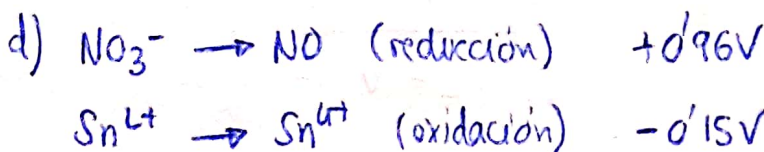 d) NO₃⁻ → NO (reducción) +0'96V
Sn²⁺ → Sn⁴⁺ (oxidación) -0'15V